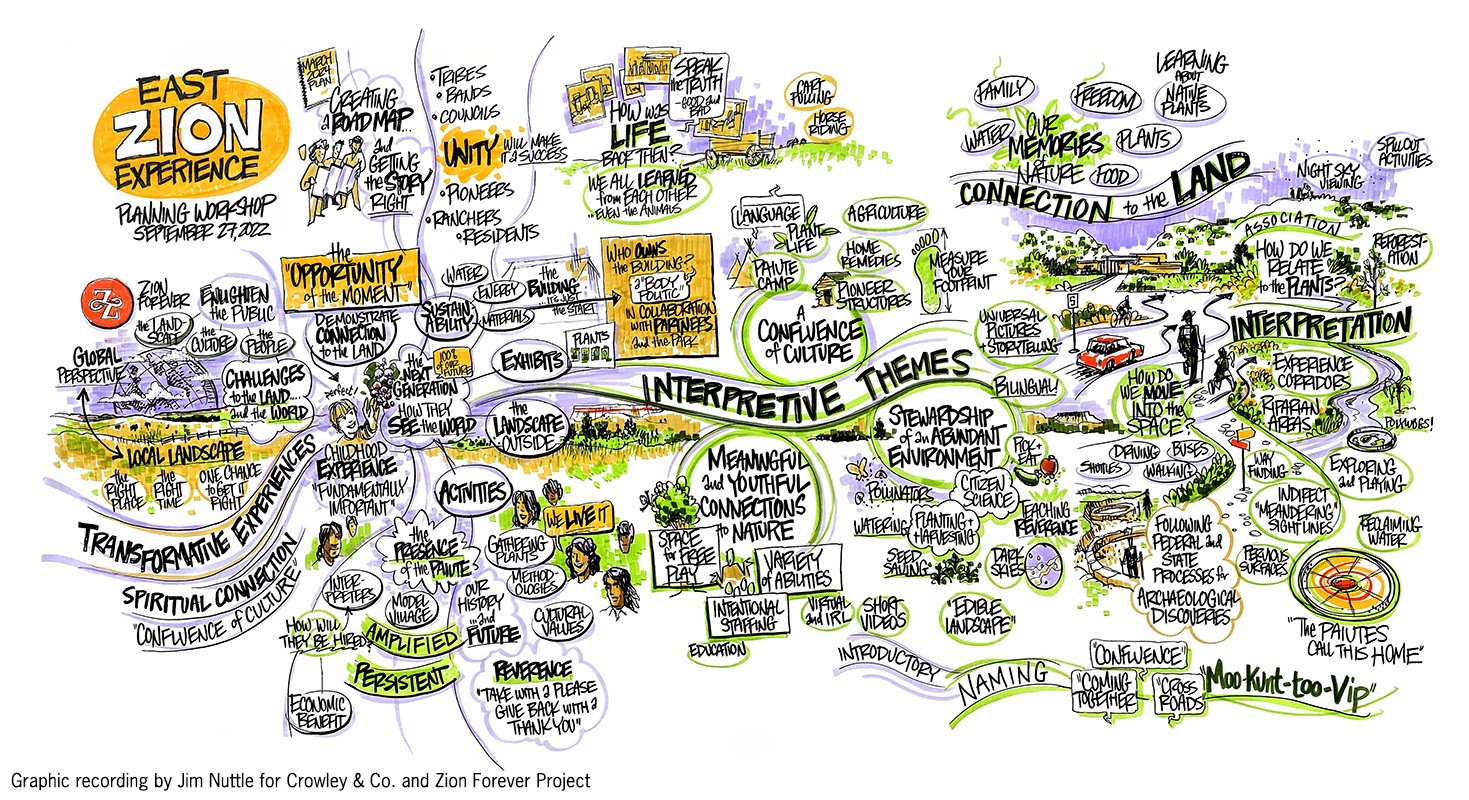 EAST
ZION
EXPERIENCE
PLANNING WORKSHOP
SEPTEMBER 27, 2022
MARCH
2024
PLAN
CREATING
a ROAD MAP...
and
GETTING
the STORY
RIGHT
TRIBES
BANDS
COUNCILS
UNITY WILL MAKE
IT a SUCCESS
PIONEERS
RANCHERS
RESIDENTS
SPEAK
the TRUTH
-GOOD and
BAD
HOW WAS
LIFE
BACK THEN?
WE ALL LEARNED
from EACH OTHER
...EVEN the ANIMALS
CART
PULLING
HORSE
RIDING
FAMILY
FREEDOM
LEARNING
ABOUT
NATIVE
PLANTS
WATER
OUR
MEMORIES
of NATURE
PLANTS
FOOD
CONNECTION to the LAND
NIGHT SKY
VIEWING
SPILLOUT
ACTIVITIES
ASSOCIATION
HOW DO WE
RELATE
to the PLANTS?
REFOREST-
ATION
ZION
FOREVER
ENLIGHTEN
THE PUBLIC
the LAND
SCAPE
the
CULTURE
the
PEOPLE
GLOBAL
PERSPECTIVE
CHALLENGES
to the LAND...
and the WORLD
LOCAL LANDSCAPE
the
RIGHT
PLACE
the
RIGHT
TIME
ONE CHANCE
to GET IT
RIGHT
the
"OPPORTUNITY
of the MOMENT"
DEMONSTRATE
CONNECTION
to the LAND
perfect!
the
NEXT
GENERATION
HOW THEY
SEE the WORLD
100%
of OUR
FUTURE
CHILDHOOD
EXPERIENCE
"FUNDAMENTALLY
IMPORTANT"
TRANSFORMATIVE EXPERIENCES
SPIRITUAL CONNECTION
"CONFLUENCE of CULTURE"
WATER
ENERGY
SUSTAIN
ABILITY
MATERIALS
the
BUILDING
IT'S JUST
the START
WHO OWNS
the BUILDING?
a "BODY
POLITIC"
IN COLLABORATION
WITH PARTNERS
and the PARK
EXHIBITS
PLANTS
the
LANDSCAPE
OUTSIDE
ACTIVITIES
INTERPRETIVE THEMES
LANGUAGE
PLANT
LIFE
AGRICULTURE
PAIUTE
CAMP
HOME
REMEDIES
PIONEER
STRUCTURES
MEASURE
YOUR
FOOTPRINT
A
CONFLUENCE
of CULTURE
UNIVERSAL
PICTURES
+ STORYTELLING
BILINGUAL!
STEWARDSHIP
of an ABUNDANT
ENVIRONMENT
PICK+
EAT
POLLINATORS
CITIZEN
SCIENCE
WATERING
PLANTING +
HARVESTING
TEACHING
REVERENCE
SEED
SAVING
DARK
SKIES
MEANINGFUL
and YOUTHFUL
CONNECTIONS
to NATURE
SPACE
for FREE
PLAY
VARIETY
of ABILITIES
INTENTIONAL
STAFFING
VIRTUAL
and IRL
SHORT
VIDEOS
"EDIBLE
LANDSCAPE"
EDUCATION
the
PRESENCE
of the PAIUTE
INTER-
PRETERS
HOW WILL
THEY BE HIRED?
MODEL
VILLAGE
AMPLIFIED
PERSISTENT
ECONOMIC
BENEFIT
WE LIVE IT
GATHERING
PLANTS
METHOD-
OLOGIES
OUR
HISTORY
...and
FUTURE
CULTURAL
VALUES
REVERENCE
"TAKE WITH a PLEASE
GIVE BACK WITH a
THANK YOU"
INTERPRETATION
HOW DO
WE MOVE
INTO the
SPACE?
DRIVING
BUSES
SHUTTLES
WALKING
EXPERIENCE
CORRIDORS
RIPARIAN
AREAS
WAY
FINDING
EXPLORING
and PLAYING
INDIRECT
"MEANDERING"
SIGHT LINES
RECLAIMING
WATER
PERVIOUS
SURFACES
FOLLOWING
FEDERAL and
STATE
PROCESSES for
ARCHAEOLOGICAL
DISCOVERIES
"The PAIUTES
CALL THIS HOME"
INTRODUCTORY
NAMING
"CONFLUENCE"
"COMING
TOGETHER"
"CROSS
ROADS"
"Moo-Kunt-too-Vip"
Graphic recording by Jim Nuttle for Crowley & Co. and Zion Forever Project